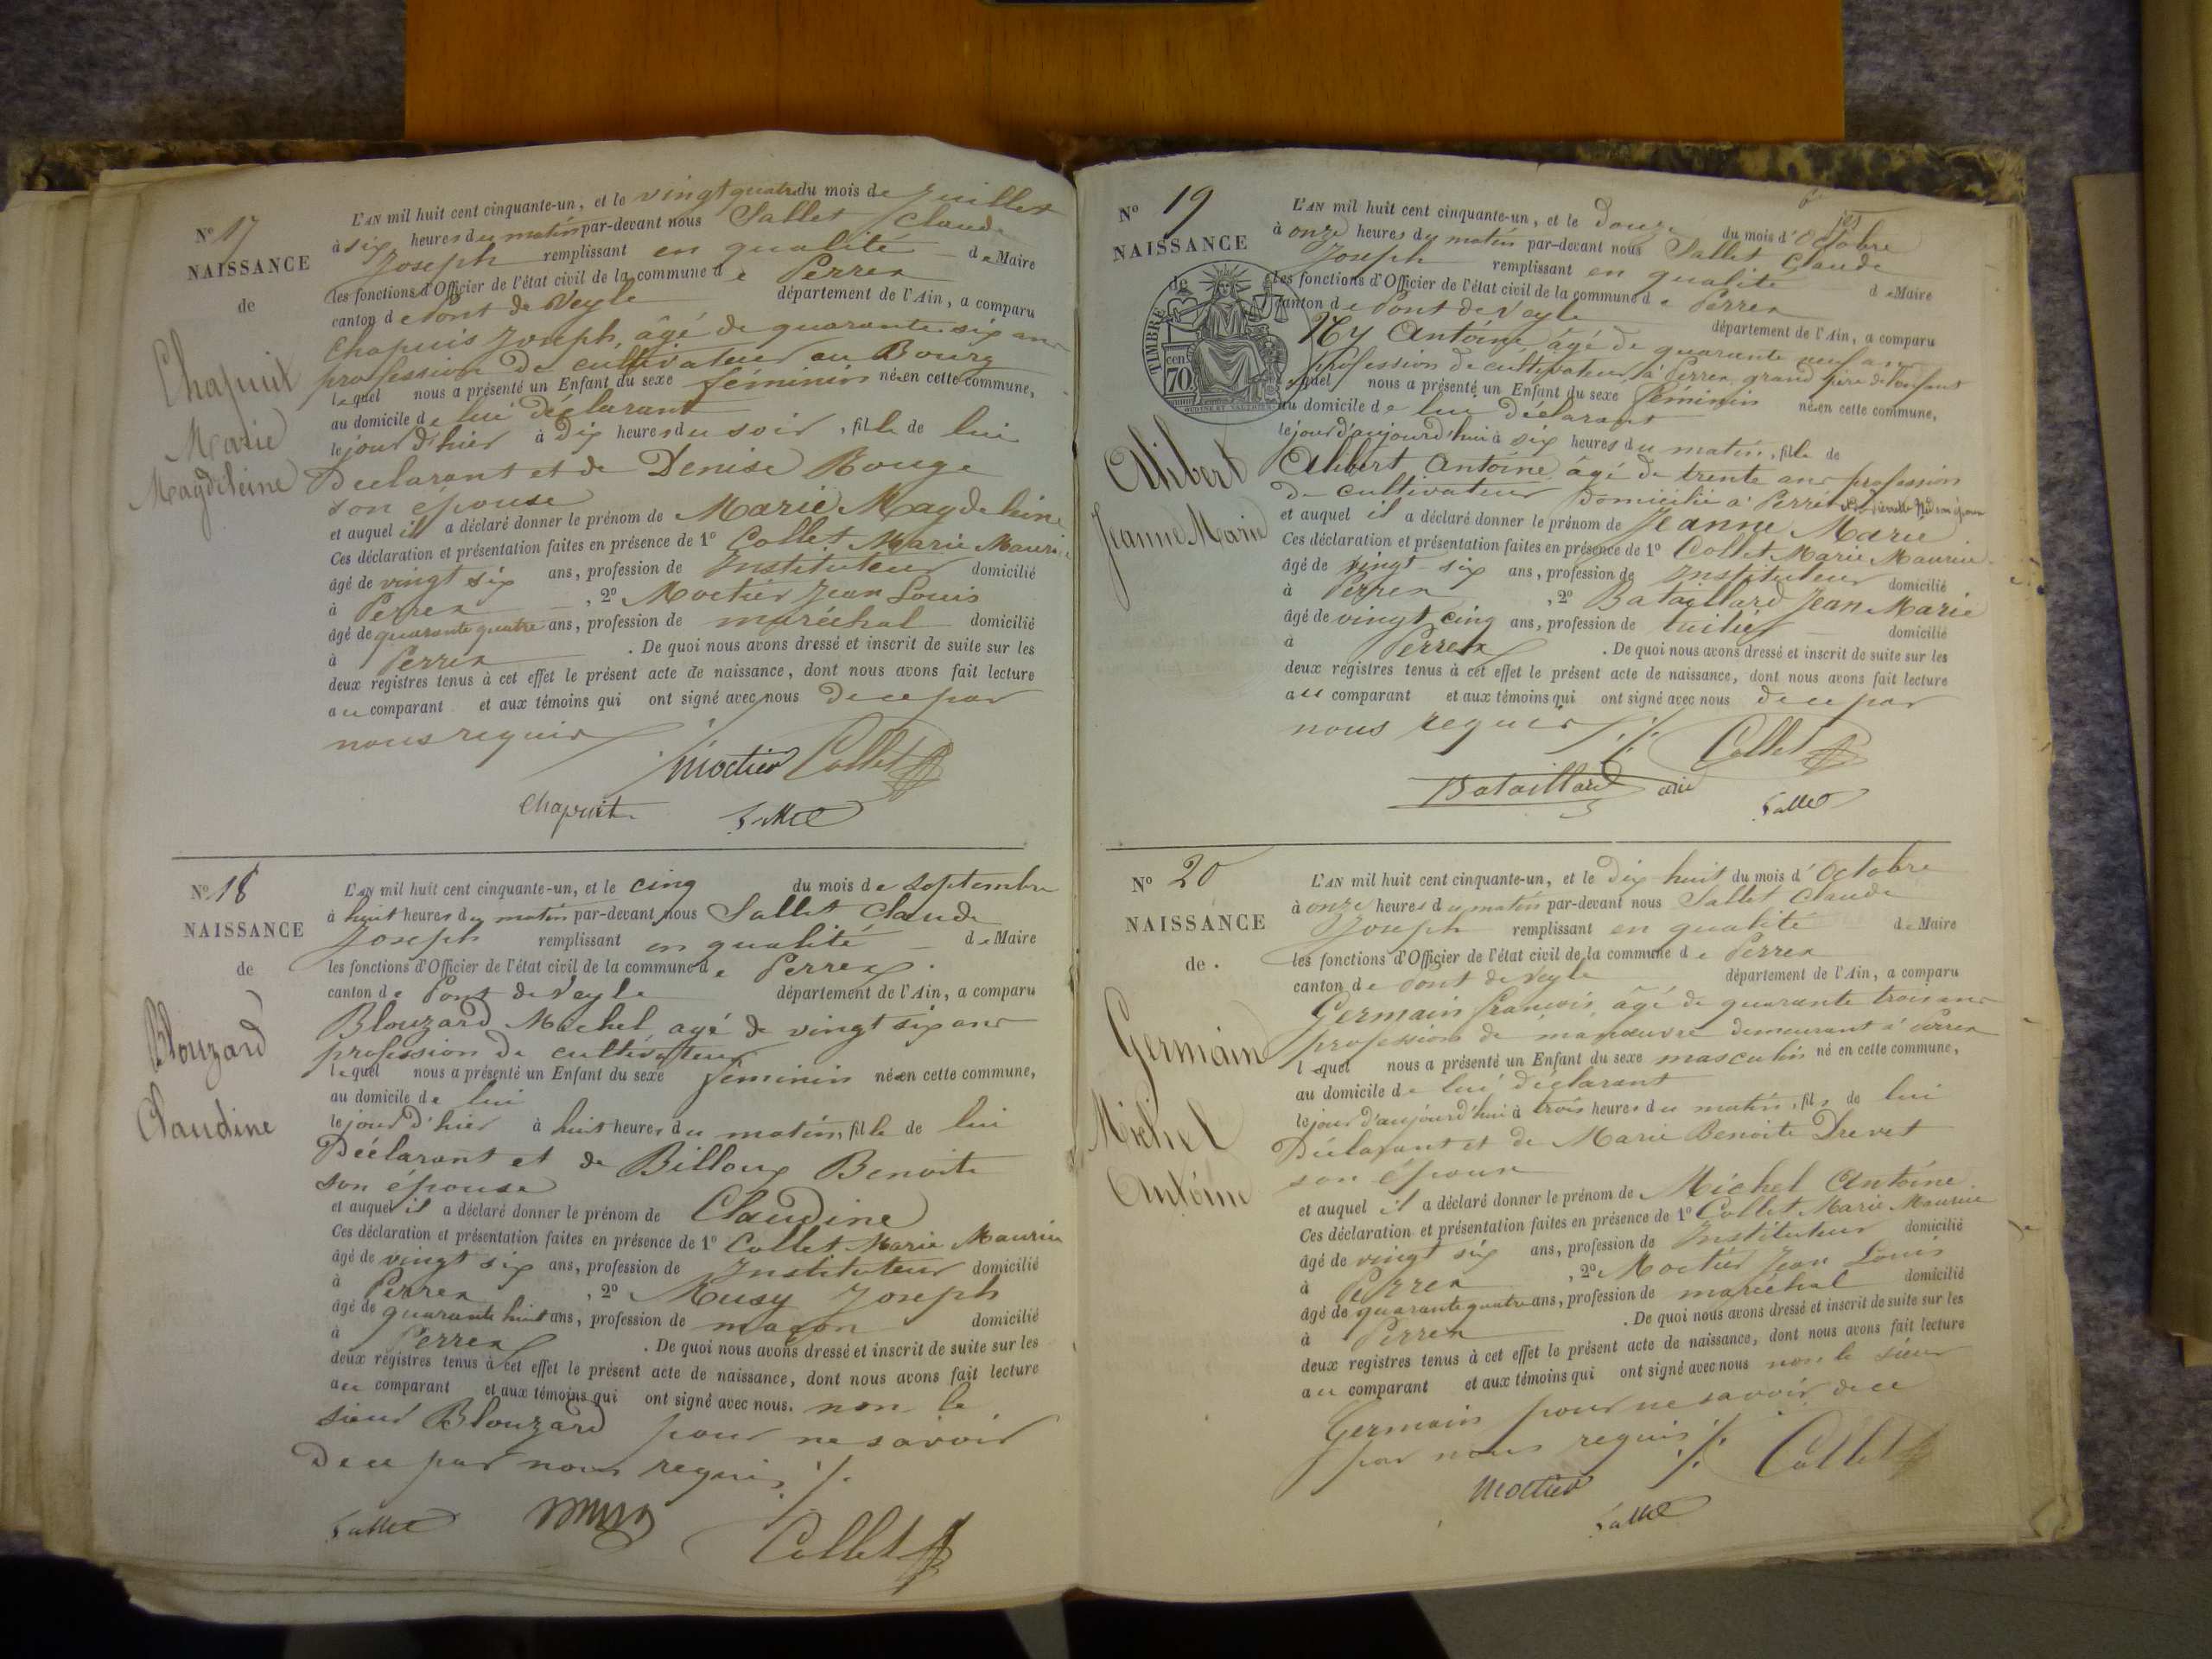 N° 17
NAISSANCE
de
Chapuit
Marie
Magdeleine
L'AN mil huit cent cinquante-un, et le vingt quatre du mois de Juillet
à six heures du matin par-devant nous Sallet Claude
Joseph remplissant en qualité de Maire
les fonctions d'Officier de l'état civil de la commune de Perrex
canton de Pont de Veyle département de l'Ain, a comparu
Chapuis Joseph, âgé de quarante six ans
profession de cultivateur au Bourg
lequel nous a présenté un Enfant du sexe féminin né en cette commune,
au domicile de lui déclarant
le jour d'hier à dix heures du soir, fille de lui
Déclarant et de Denise Rouge
son épouse
et auquel il a déclaré donner le prénom de Marie Magdeleine
Ces déclaration et présentation faites en présence de 1° Collet Marie Maurice
âgé de vingt six ans, profession de Instituteur domicilié
à Perrex , 2° Moctier Jean Louis
âgé de quarante quatre ans, profession de maréchal domicilié
à Perrex . De quoi nous avons dressé et inscrit de suite sur les
deux registres tenus à cet effet le présent acte de naissance, dont nous avons fait lecture
au comparant et aux témoins qui ont signé avec nous de ce par
nous requis
Moctier Collet
Chapuit Sallet
N° 18
NAISSANCE
de
Blouzard
Claudine
L'AN mil huit cent cinquante-un, et le cinq du mois de Septembre
à huit heures du matin par-devant nous Sallet Claude
Joseph remplissant en qualité de Maire
les fonctions d'Officier de l'état civil de la commune de Perrex.
canton de Pont de Veyle département de l'Ain, a comparu
Blouzard Michel, agé de vingt six ans
profession de cultivateur
lequel nous a présenté un Enfant du sexe féminin né en cette commune,
au domicile de lui
le jour d'hier à huit heures du matin, fille de lui
Déclarant et de Billoux Benoite
son épouse
et auquel il a déclaré donner le prénom de Claudine
Ces déclaration et présentation faites en présence de 1° Collet Marie Maurice
âgé de vingt six ans, profession de Instituteur domicilié
à Perrex , 2° Musy Joseph
âgé de quarante huit ans, profession de maçon domicilié
à Perrex . De quoi nous avons dressé et inscrit de suite sur les
deux registres tenus à cet effet le présent acte de naissance, dont nous avons fait lecture
au comparant et aux témoins qui ont signé avec nous. non le
sieur Blouzard pour ne savoir
de ce par nous requis ./.
Sallet Collet
N° 19
NAISSANCE
de
TIMBRE
cent. 70
Alibert
Jeanne Marie
L'AN mil huit cent cinquante-un, et le Douze du mois d'Octobre
à onze heures du matin par-devant nous Sallet Claude
Joseph remplissant en qualité de Maire
les fonctions d'Officier de l'état civil de la commune de Perrex
canton de Pont de Veyle département de l'Ain, a comparu
Ny Antoine, âgé de quarante neuf ans
profession de cultivateur, à Perrex, grand père de l'enfant
lequel nous a présenté un Enfant du sexe féminin né en cette commune,
au domicile de lui déclarant
le jour d'aujourd'hui à six heures du matin, fille de
Alibert Antoine âgé de trente ans profession
de cultivateur domicilié à Perrex
et auquel il a déclaré donner le prénom de Jeanne Marie
Ces déclaration et présentation faites en présence de 1° Collet Marie Maurice
âgé de vingt six ans, profession de Instituteur domicilié
à Perrex , 2° Bataillard Jean Marie
âgé de vingt cinq ans, profession de tuilier domicilié
à Perrex . De quoi nous avons dressé et inscrit de suite sur les
deux registres tenus à cet effet le présent acte de naissance, dont nous avons fait lecture
au comparant et aux témoins qui ont signé avec nous de ce par
nous requis ./. Collet
Bataillard Sallet
N° 20
NAISSANCE
de
Germain
Michel
Antoine
L'AN mil huit cent cinquante-un, et le dix huit du mois d'Octobre
à onze heures du matin par-devant nous Sallet Claude
Joseph remplissant en qualité de Maire
les fonctions d'Officier de l'état civil de la commune de Perrex
canton de Pont de Veyle département de l'Ain, a comparu
Germain françois, âgé de quarante trois ans
profession de manœuvre demeurant à Perrex
lequel nous a présenté un Enfant du sexe masculin né en cette commune,
au domicile de lui déclarant
le jour d'aujourd'hui à trois heures du matin, fils de lui
Déclarant et de Marie Benoite Drevet
son épouse
et auquel il a déclaré donner le prénom de Michel Antoine.
Ces déclaration et présentation faites en présence de 1° Collet Marie Maurice
âgé de vingt six ans, profession de Instituteur domicilié
à Perrex , 2° Moctier Jean Louis
âgé de quarante quatre ans, profession de maréchal domicilié
à Perrex . De quoi nous avons dressé et inscrit de suite sur les
deux registres tenus à cet effet le présent acte de naissance, dont nous avons fait lecture
au comparant et aux témoins qui ont signé avec nous non le sieur
Germain pour ne savoir de ce
par nous requis ./. Collet
Moctier
Sallet